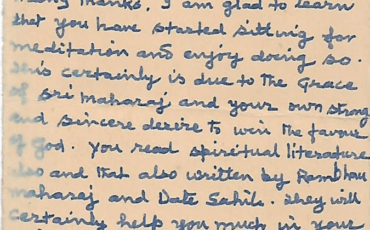 many thanks. I am glad to learn
that you have started sitting for
meditation and enjoy doing so.
This certainly is due to the Grace
of Sri Maharaj and your own strong
and sincere desire to win the favour
of God. You read spiritual literature
also and that also written by Rambhau
Maharaj and Date Sahib. They will
certainly help you much in your